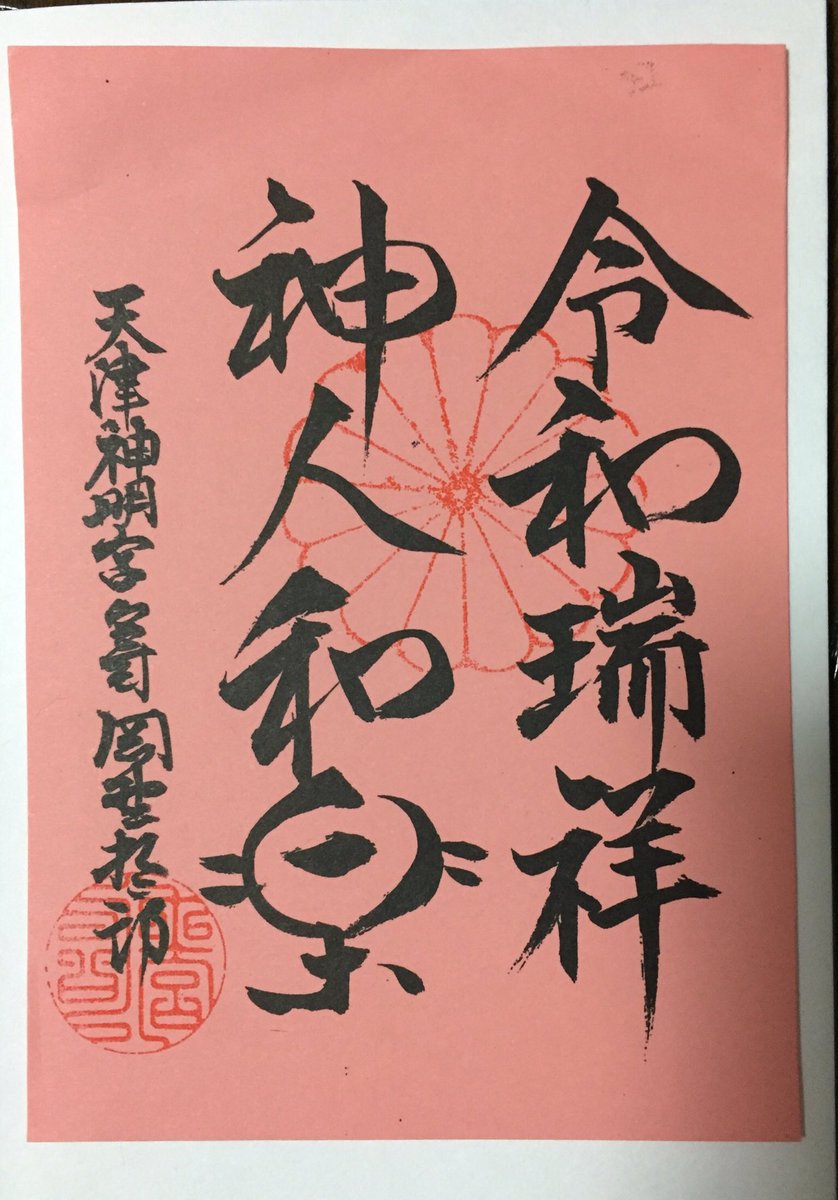 令和瑞祥
神人和楽
天津神明宮 岡野哲郎